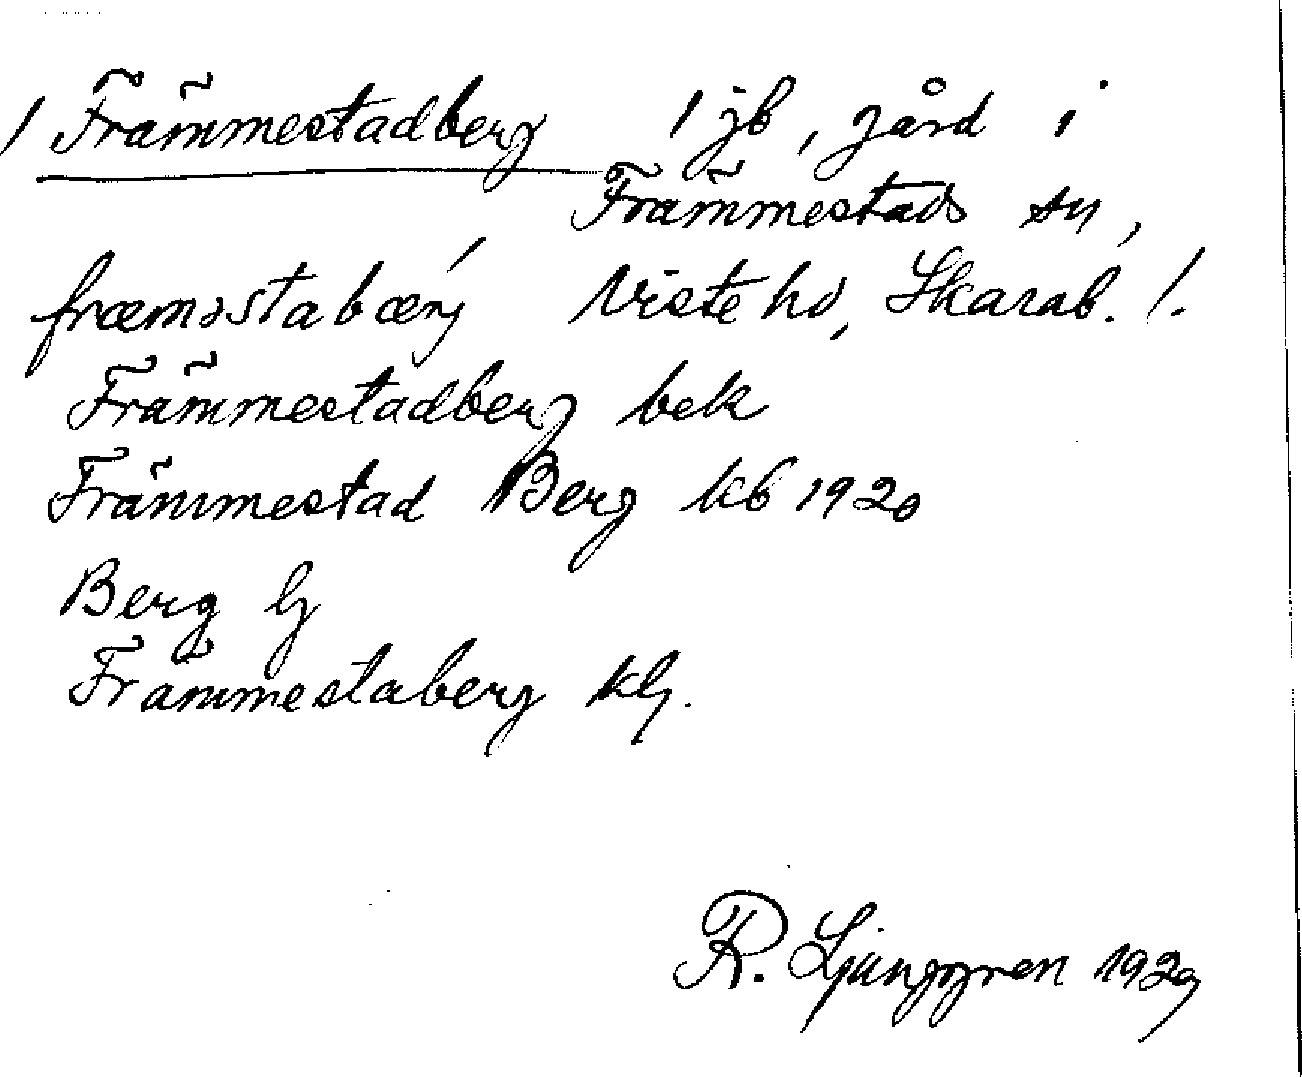 / Främmestadberg / jb, gård i
Främmestads sn,
fræməstabærj Viste hd, Skarab. l.
Främmestadberg bek
Främmestad Berg kb 1920
Berg Gj
Främmestaberg kG.
R. Ljunggren 1929